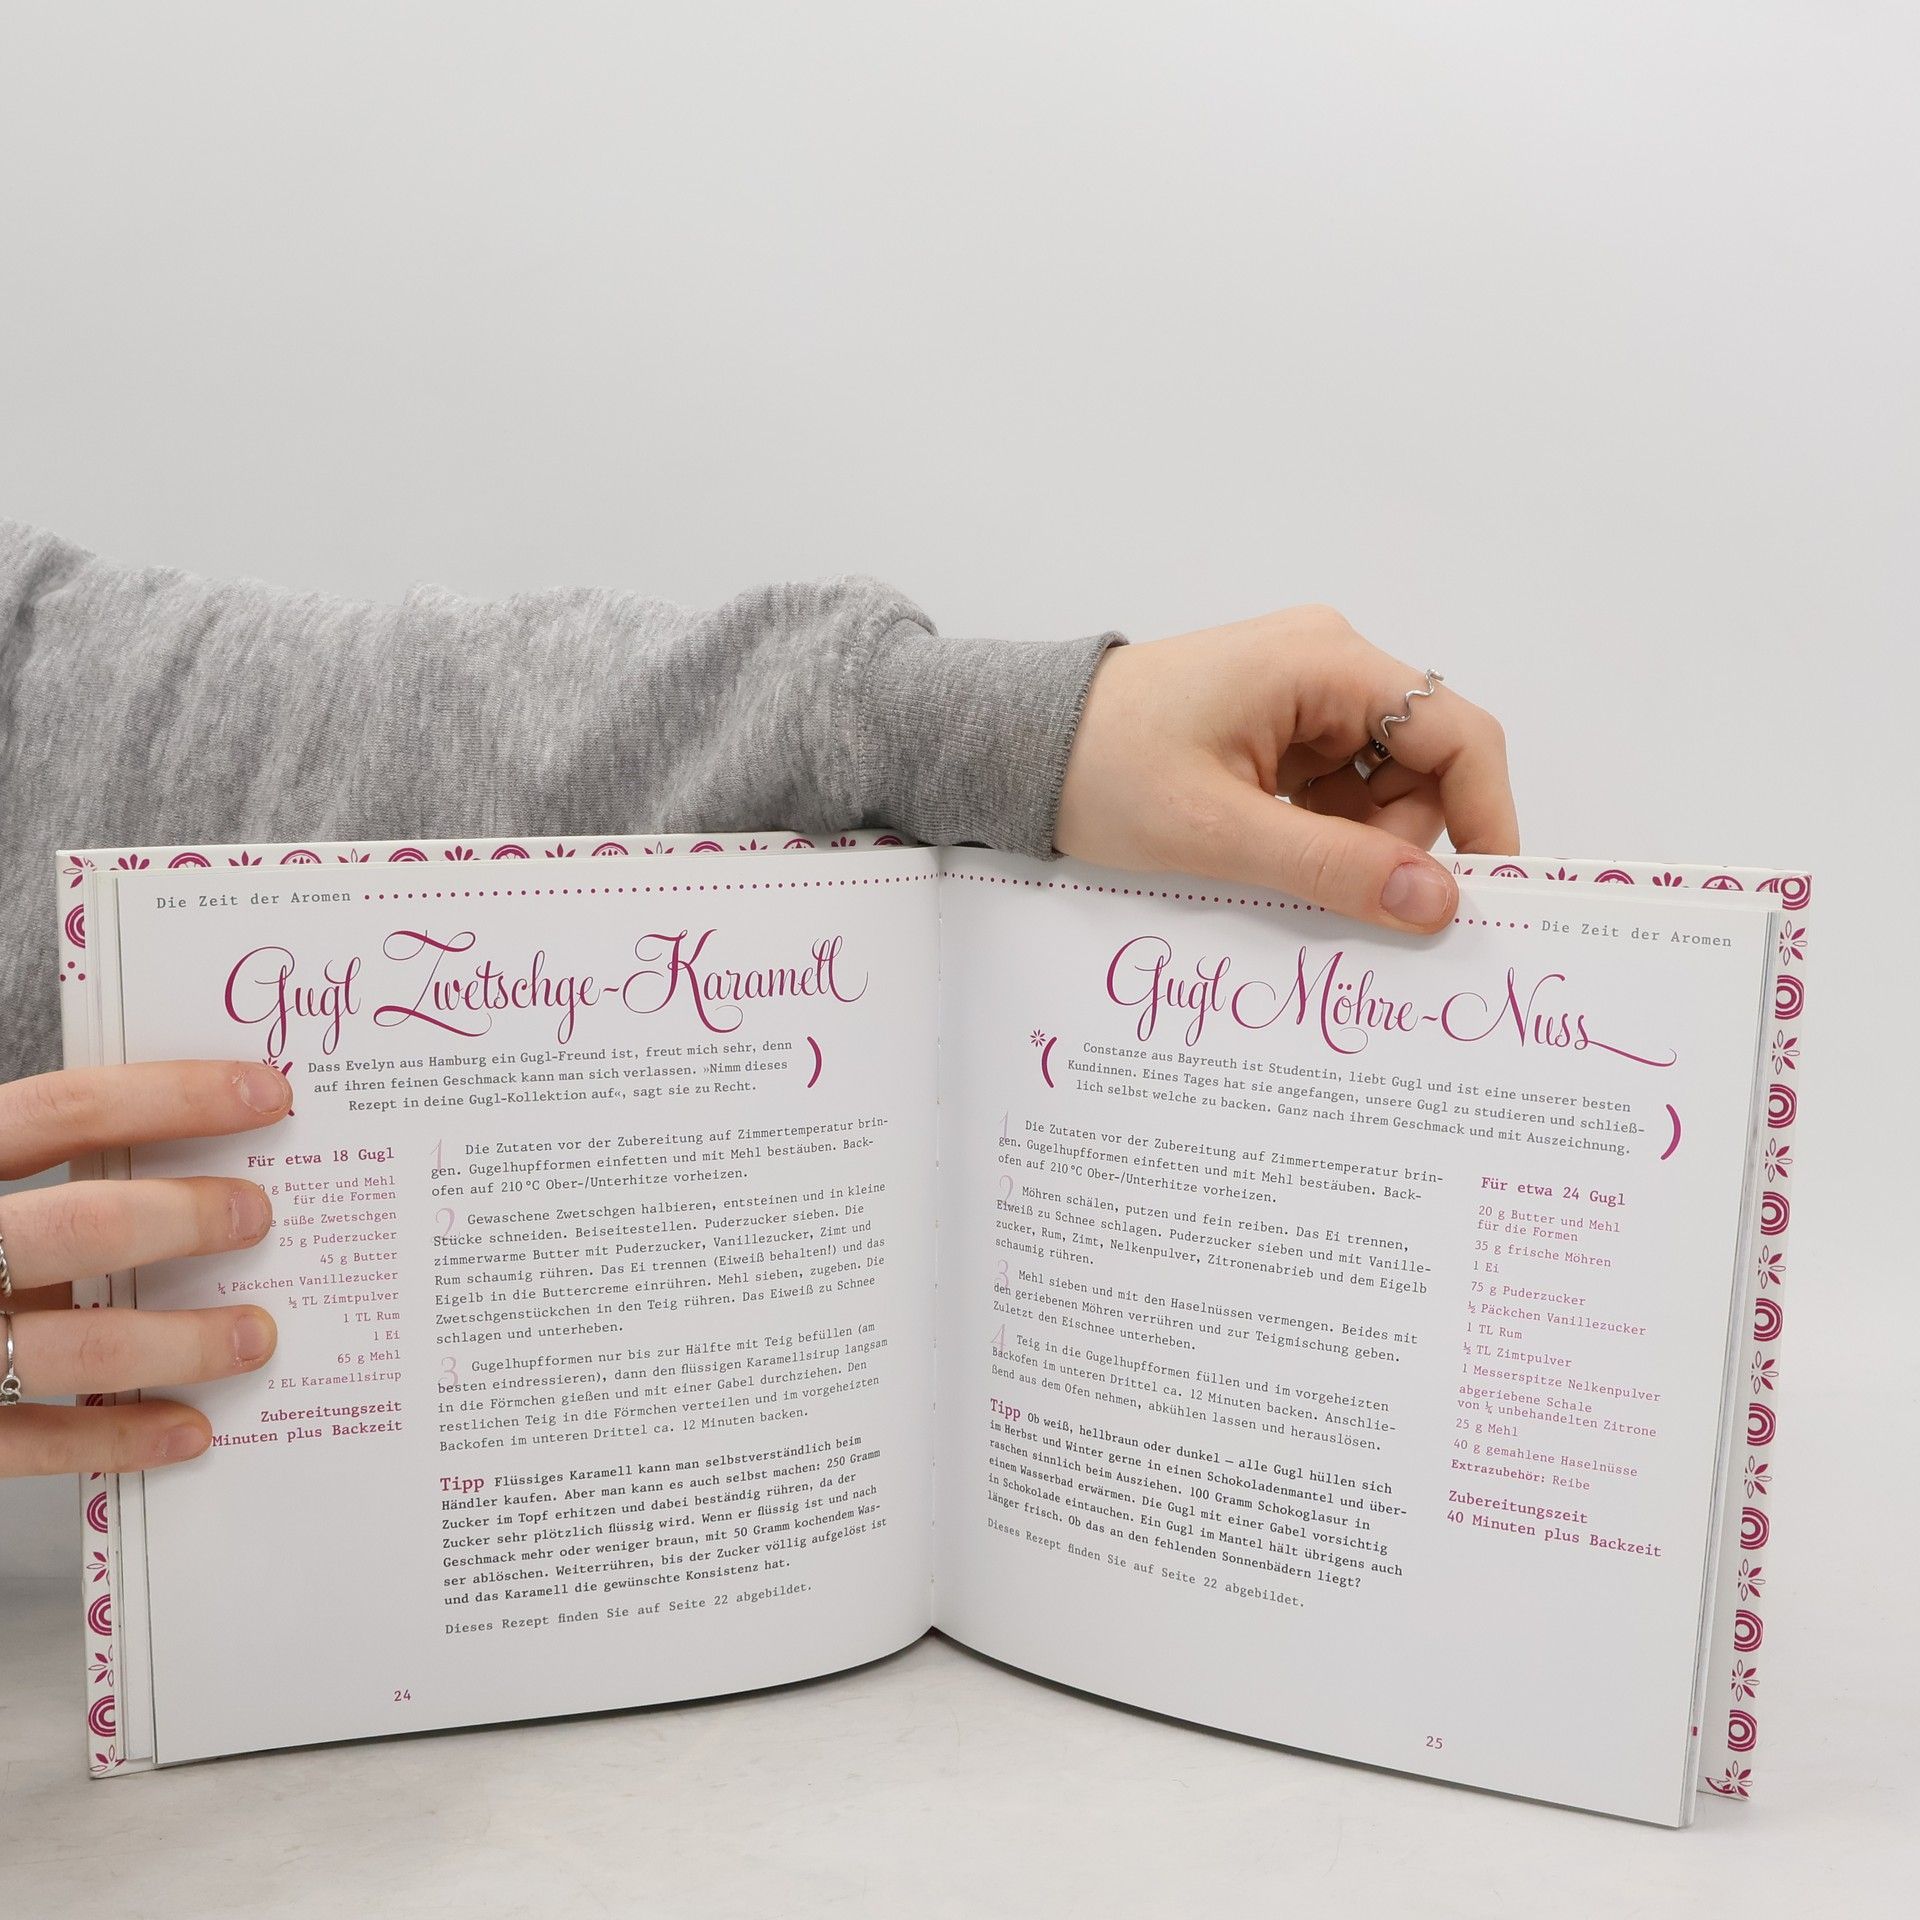 Die Zeit der Aromen
Gugl Zwetschge-Karamell
Dass Evelyn aus Hamburg ein Gugl-Freund ist, freut mich sehr, denn
auf ihren feinen Geschmack kann man sich verlassen. »Nimm dieses
Rezept in deine Gugl-Kollektion auf«, sagt sie zu Recht.
Für etwa 18 Gugl
g Butter und Mehl
für die Formen
süße Zwetschgen
25 g Puderzucker
45 g Butter
¼ Päckchen Vanillezucker
½ TL Zimtpulver
1 TL Rum
1 Ei
65 g Mehl
2 EL Karamellsirup
Zubereitungszeit
Minuten plus Backzeit
1 Die Zutaten vor der Zubereitung auf Zimmertemperatur brin-
gen. Gugelhupfformen einfetten und mit Mehl bestäuben. Back-
ofen auf 210 °C Ober-/Unterhitze vorheizen.
2 Gewaschene Zwetschgen halbieren, entsteinen und in kleine
Stücke schneiden. Beiseitestellen. Puderzucker sieben. Die
zimmerwarme Butter mit Puderzucker, Vanillezucker, Zimt und
Rum schaumig rühren. Das Ei trennen (Eiweiß behalten!) und das
Eigelb in die Buttercreme einrühren. Mehl sieben, zugeben. Die
Zwetschgenstückchen in den Teig rühren. Das Eiweiß zu Schnee
schlagen und unterheben.
3 Gugelhupfformen nur bis zur Hälfte mit Teig befüllen (am
besten eindressieren), dann den flüssigen Karamellsirup langsam
in die Förmchen gießen und mit einer Gabel durchziehen. Den
restlichen Teig in die Förmchen verteilen und im vorgeheizten
Backofen im unteren Drittel ca. 12 Minuten backen.
Tipp Flüssiges Karamell kann man selbstverständlich beim
Händler kaufen. Aber man kann es auch selbst machen: 250 Gramm
Zucker im Topf erhitzen und dabei beständig rühren, da der
Zucker sehr plötzlich flüssig wird. Wenn er flüssig ist und nach
Geschmack mehr oder weniger braun, mit 50 Gramm kochendem Was-
ser ablöschen. Weiterrühren, bis der Zucker völlig aufgelöst ist
und das Karamell die gewünschte Konsistenz hat.
Dieses Rezept finden Sie auf Seite 22 abgebildet.
24
Die Zeit der Aromen
Gugl Möhre-Nuss
Constanze aus Bayreuth ist Studentin, liebt Gugl und ist eine unserer besten
Kundinnen. Eines Tages hat sie angefangen, unsere Gugl zu studieren und schließ-
lich selbst welche zu backen. Ganz nach ihrem Geschmack und mit Auszeichnung.
1 Die Zutaten vor der Zubereitung auf Zimmertemperatur brin-
gen. Gugelhupfformen einfetten und mit Mehl bestäuben. Back-
ofen auf 210 °C Ober-/Unterhitze vorheizen.
2 Möhren schälen, putzen und fein reiben. Das Ei trennen,
Eiweiß zu Schnee schlagen. Puderzucker sieben und mit Vanille-
zucker, Rum, Zimt, Nelkenpulver, Zitronenabrieb und dem Eigelb
schaumig rühren.
3 Mehl sieben und mit den Haselnüssen vermengen. Beides mit
den geriebenen Möhren verrühren und zur Teigmischung geben.
Zuletzt den Eischnee unterheben.
4 Teig in die Gugelhupfformen füllen und im vorgeheizten
Backofen im unteren Drittel ca. 12 Minuten backen. Anschlie-
ßend aus dem Ofen nehmen, abkühlen lassen und herauslösen.
Tipp Ob weiß, hellbraun oder dunkel – alle Gugl hüllen sich
im Herbst und Winter gerne in einen Schokoladenmantel und über-
raschen sinnlich beim Ausziehen. 100 Gramm Schokoglasur in
einem Wasserbad erwärmen. Die Gugl mit einer Gabel vorsichtig
in Schokolade eintauchen. Ein Gugl im Mantel hält übrigens auch
länger frisch. Ob das an den fehlenden Sonnenbädern liegt?
Dieses Rezept finden Sie auf Seite 22 abgebildet.
Für etwa 24 Gugl
20 g Butter und Mehl
für die Formen
35 g frische Möhren
1 Ei
75 g Puderzucker
½ Päckchen Vanillezucker
1 TL Rum
½ TL Zimtpulver
1 Messerspitze Nelkenpulver
abgeriebene Schale
von ¼ unbehandelten Zitrone
25 g Mehl
40 g gemahlene Haselnüsse
Extrazubehör: Reibe
Zubereitungszeit
40 Minuten plus Backzeit
25